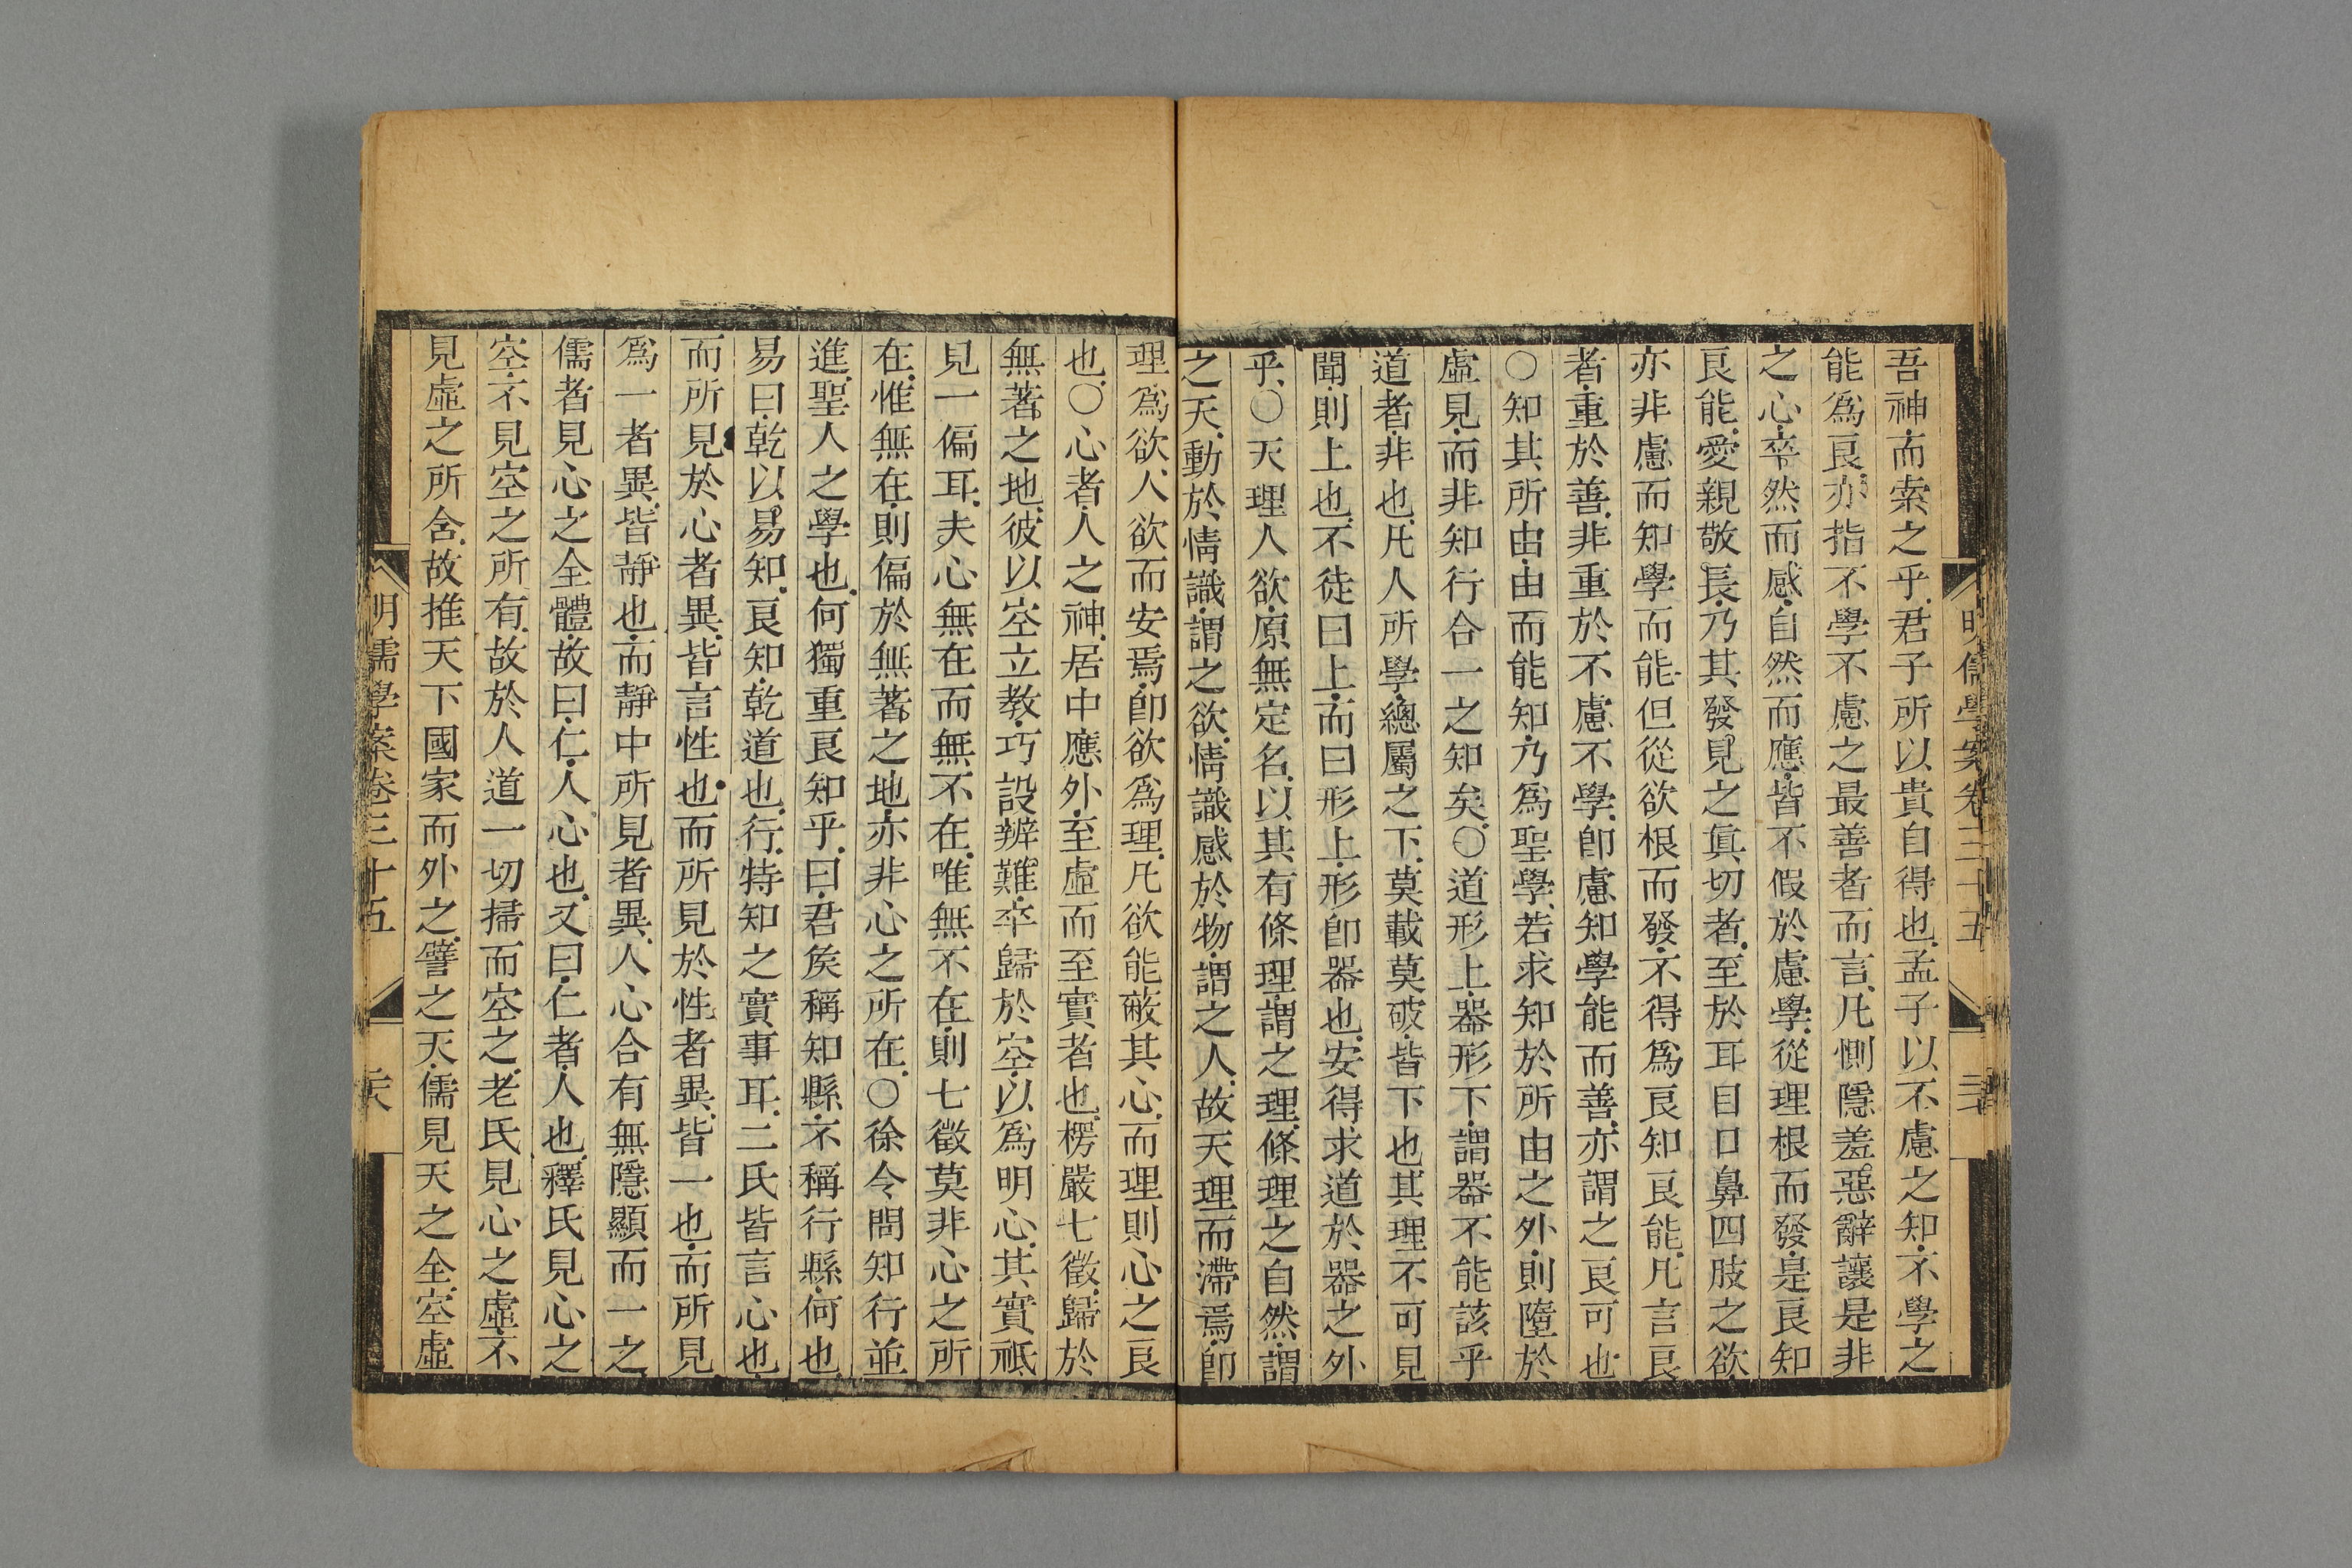 吾神而索之乎君子所以貴自得也孟子以不慮之知不學之
能爲良亦指不學不慮之最善者而言凡惻隱羞惡辭讓是非
之心卒然而感自然而應皆不假於慮學從理根而發是良知
良能愛親敬長乃其發見之眞切者至於耳目口鼻四肢之欲
亦非慮而知學而能但從欲根而發不得爲良知良能凡言良
者重於善非重於不慮不學卽慮知學能而善亦謂之良可也
〇知其所由由而能知乃爲聖學若求知於所由之外則墮於
虛見而非知行合一之知矣〇道形上器形下謂器不能該乎
道者非也凡人所學總屬之下莫載莫破皆下也其理不可見
聞則上也不徒曰上而曰形上形卽器也安得求道於器之外
乎〇天理人欲原無定名以其有條理謂之理條理之自然謂
之天動於情識謂之欲情識感於物謂之人故天理而滯焉卽
理爲欲人欲而安焉卽欲爲理凡欲能蔽其心而理則心之良
也〇心者人之神居中應外至虛而至實者也楞嚴七徵歸於
無著之地彼以空立教巧設辨難卒歸於空以爲明心其實祇
見一偏耳夫心無在而無不在唯無不在則七徵莫非心之所
在惟無在則偏於無著之地亦非心之所在〇徐令問知行並
進聖人之學也何獨重良知乎曰君矦稱知縣不稱行縣何也
易曰乾以易知良知乾道也行特知之實事耳二氏皆言心也
而所見於心者異皆言性也而所見於性者異皆一也而所見
爲一者異皆靜也而靜中所見者異人心合有無隱顯而一之
儒者見心之全體故曰仁人心也又曰仁者人也釋氏見心之
空不見空之所有故於人道一切掃而空之老氏見心之虛不
見虛之所含故推天下國家而外之譬之天儒見天之全空虛
明儒學案卷三十五